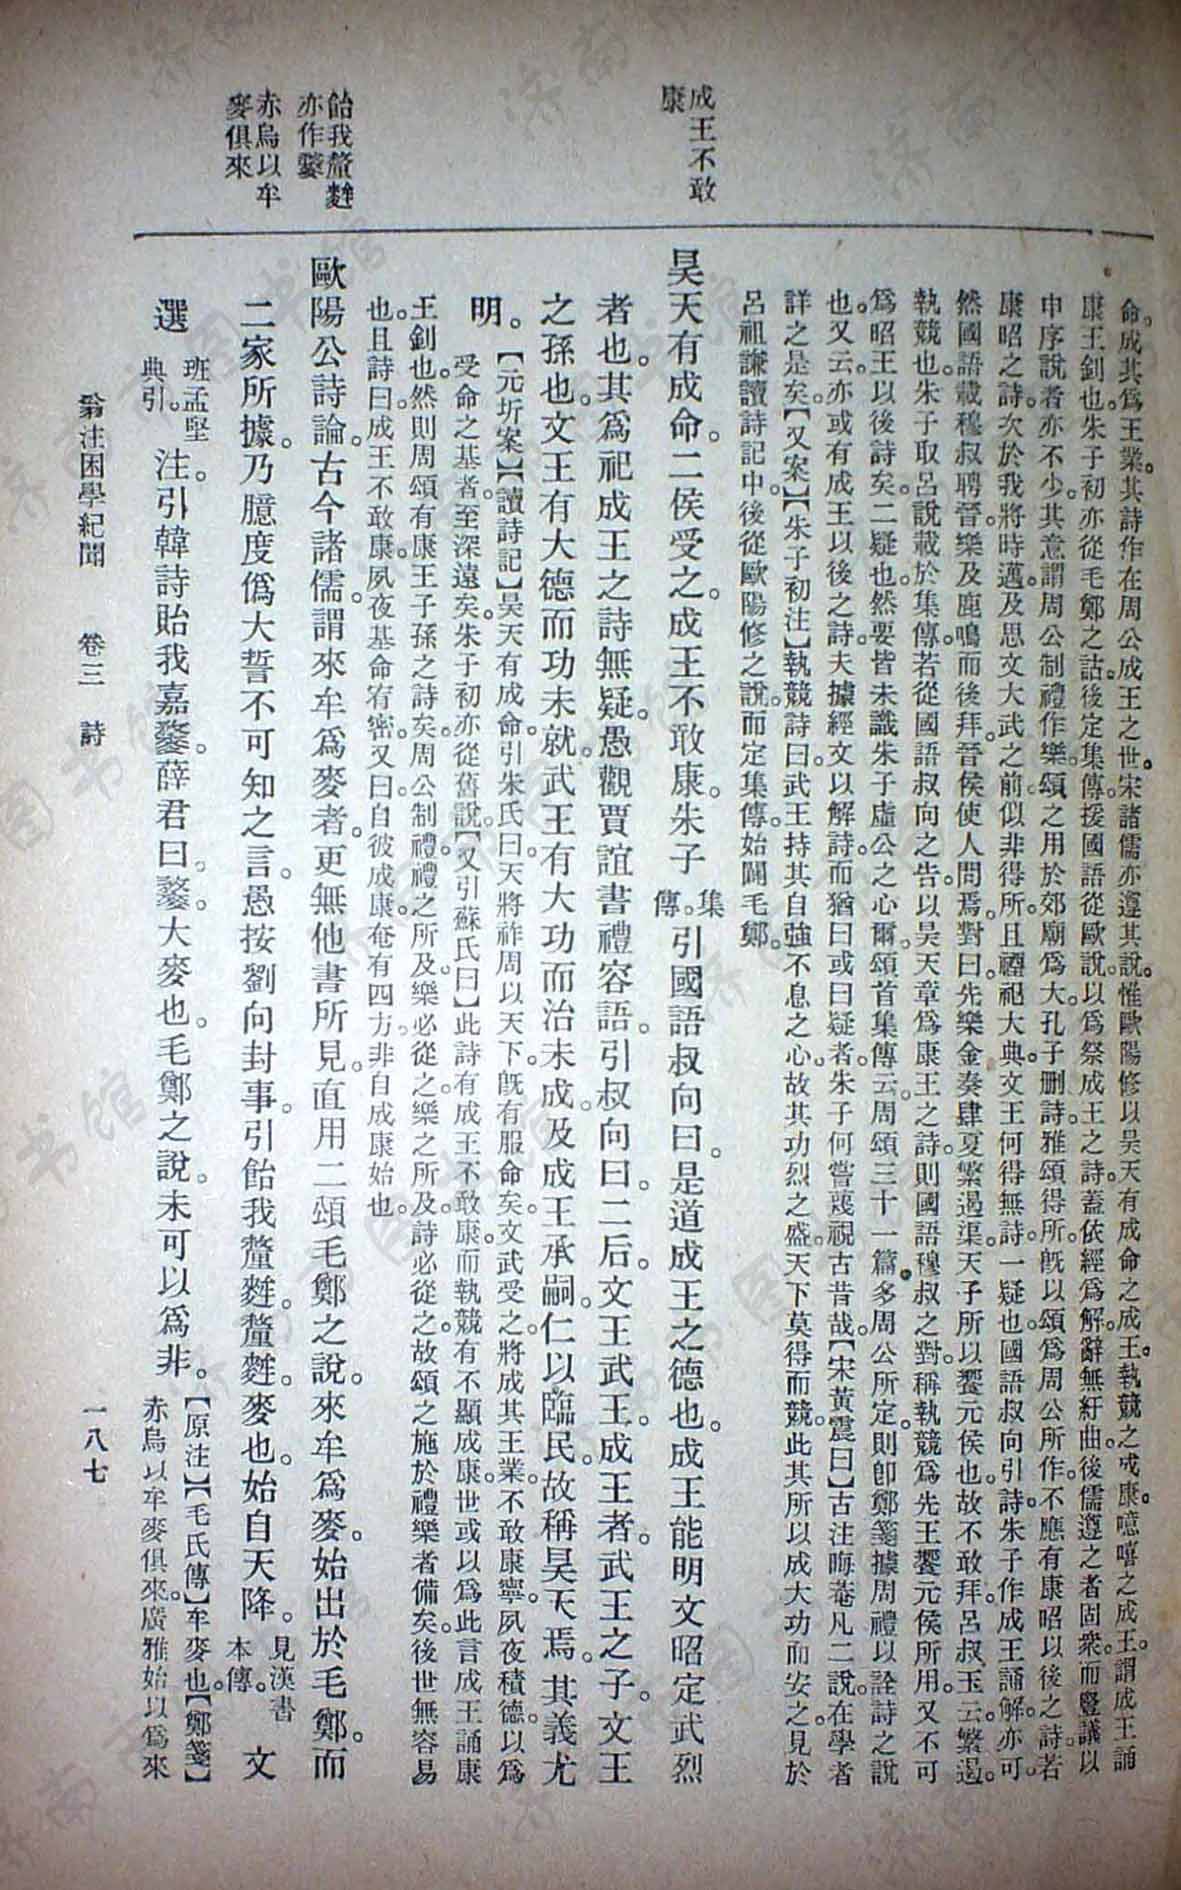 成王不敢
康
飴我釐麰
亦作鏊
赤烏以牟
麥俱來
命。成其爲王業。其詩作在周公成王之世。宋諸儒亦遵其說。惟歐陽修以昊天有成命之成王。執競之成康。噫嘻之成王。謂成王誦
康王釗也。朱子初亦從毛鄭之詁。後定集傳。援國語從歐說。以爲祭成王之詩。蓋依經爲解。辭無紆曲。後儒遵之者固衆。而豎議以
申序說者亦不少。其意謂周公制禮作樂。頌之用於郊廟爲大。孔子删詩。雅頌得所。旣以頌爲周公所作。不應有康昭以後之詩。若
康昭之詩。次於我將時邁。及思文大武之前。似非得所。且禋祀大典。文王何得無詩。一疑也。國語叔向引詩。朱子作成王誦解。亦可。
然國語載穆叔聘晉。樂及鹿鳴而後拜。晉侯使人問焉。對曰。先樂金奏肆夏繁遏渠。天子所以饗元侯也。故不敢拜。呂叔玉云。繁遏。
執競也。朱子取呂說。載於集傳。若從國語叔向之告。以昊天章爲康王之詩。則國語穆叔之對。稱執競爲先王饗元侯所用。又不可
爲昭王以後詩矣。二疑也。然要皆未識朱子虛公之心爾。頌首集傳云。周頌三十一篇。多周公所定。則卽鄭箋據周禮以詮詩之說
也。又云。亦或有成王以後之詩。夫據經文以解詩。而猶曰或曰疑者。朱子何嘗蔑視古昔哉。【宋黃震曰】古注晦菴凡二說。在學者
詳之是矣。【又案】【朱子初注】執競詩曰。武王持其自強不息之心。故其功烈之盛。天下莫得而競。此其所以成大功而安之。見於
呂祖謙讀詩記中。後從歐陽修之說。而定集傳。始闢毛鄭。
昊天有成命。二侯受之。成王不敢康。朱子集傳。引國語叔向曰。是道成王之德也。成王能明文昭定武烈
者也。其爲祀成王之詩無疑。愚觀賈誼書禮容語。引叔向曰。二后。文王武王。成王者。武王之子。文王
之孫也。文王有大德而功未就。武王有大功而治未成。及成王承嗣。仁以臨民。故稱昊天焉。其義尤
明。【元圻案】【讀詩記】昊天有成命。引朱氏曰。天將祚周以天下。旣有服命矣。文武受之。將成其王業。不敢康寧。夙夜積德。以爲
受命之基者。至深遠矣。朱子初亦從舊說。【又引蘇氏曰】此詩有成王不敢康。而執競有不顯成康。世或以爲此言成王誦康
王釗也。然則周頌有康王子孫之詩矣。周公制禮。禮之所及。樂必從之。樂之所及。詩必從之。故頌之施於禮樂者備矣。後世無容易
也。且詩曰。成王不敢康。夙夜基命宥密。又曰。自彼成康。奄有四方。非自成康始也。
歐陽公詩論。古今諸儒。謂來牟爲麥者。更無他書所見。直用二頌毛鄭之說。來牟爲麥。始出於毛鄭。而
二家所據。乃臆度僞大誓不可知之言。愚按劉向封事。引飴我釐麰。釐麰。麥也。始自天降。見漢書本傳。文
選班孟堅典引。注。引韓詩貽我嘉鏊。薛君曰。鏊。大麥也。毛鄭之說。未可以爲非。【原注】【毛氏傳】牟麥也。【鄭箋】
赤烏以牟麥俱來。廣雅始以爲來
翁注困學紀聞　卷三　詩
一八七